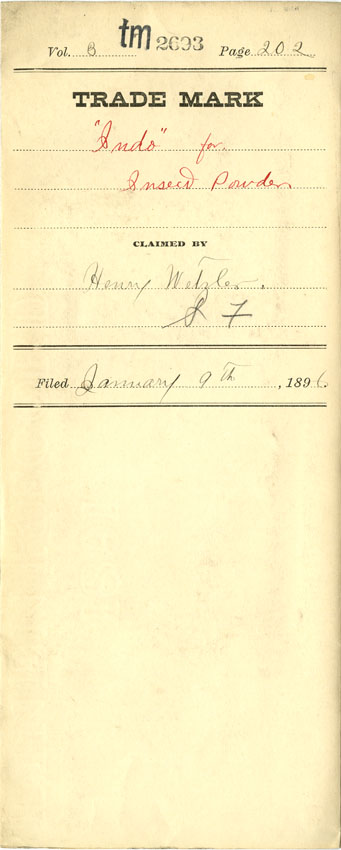 Vol. B tm 2693 Page 202
TRADE MARK
"Indo" for
Insect Powder
CLAIMED BY
Henry Wetzler.
& 7
Filed January 9th, 1896.